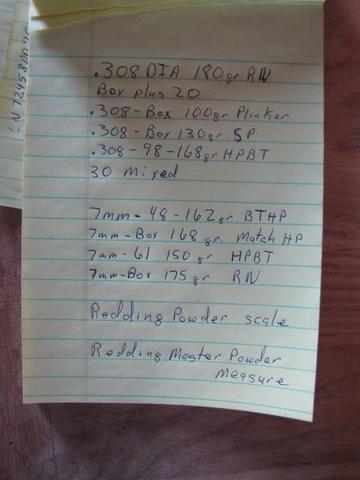 .308 DIA 180gr RN
Box plus 20
.308-Box 100gr Plinker
.308-Box 130gr SP
.308-98-168gr HPBT
30 mixed
7mm-48-162gr BTHP
7mm-Box 168gr. Match HP
7mm-61 150gr HPBT
7mm-Box 175gr RN
Redding Powder scale
Redding Master Powder
Measure